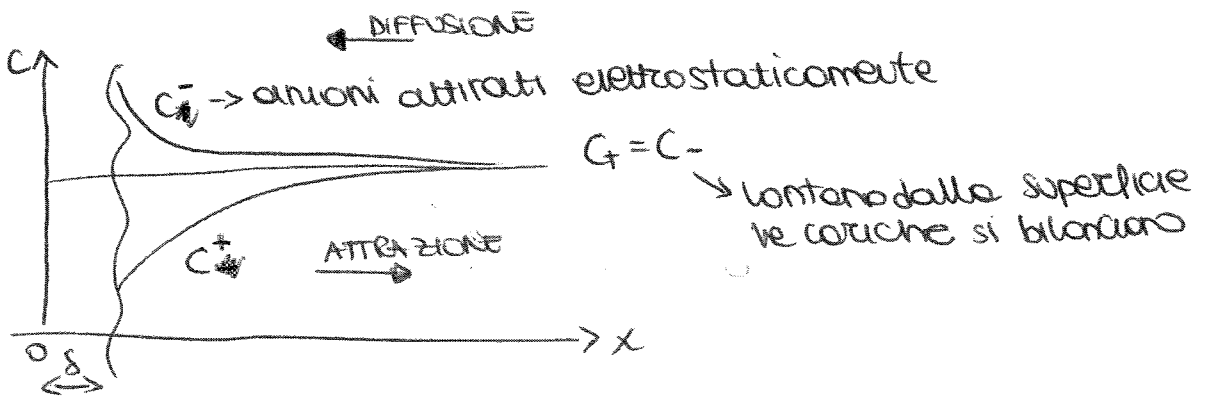 DIFFUSIONE
C
C⁻ -> anioni attirati elettrostaticamente
C₊ = C₋
lontano dalla superficie
le cariche si bilanciano
C⁺
ATTRAZIONE
0
δ
x